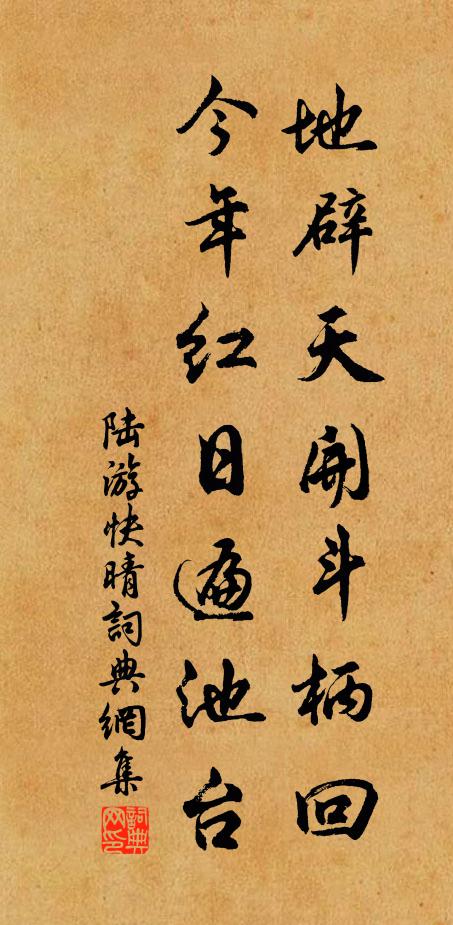 地辟天開斗柄回
今年红日遍池台
陆游快晴詞典網集
詞典网印